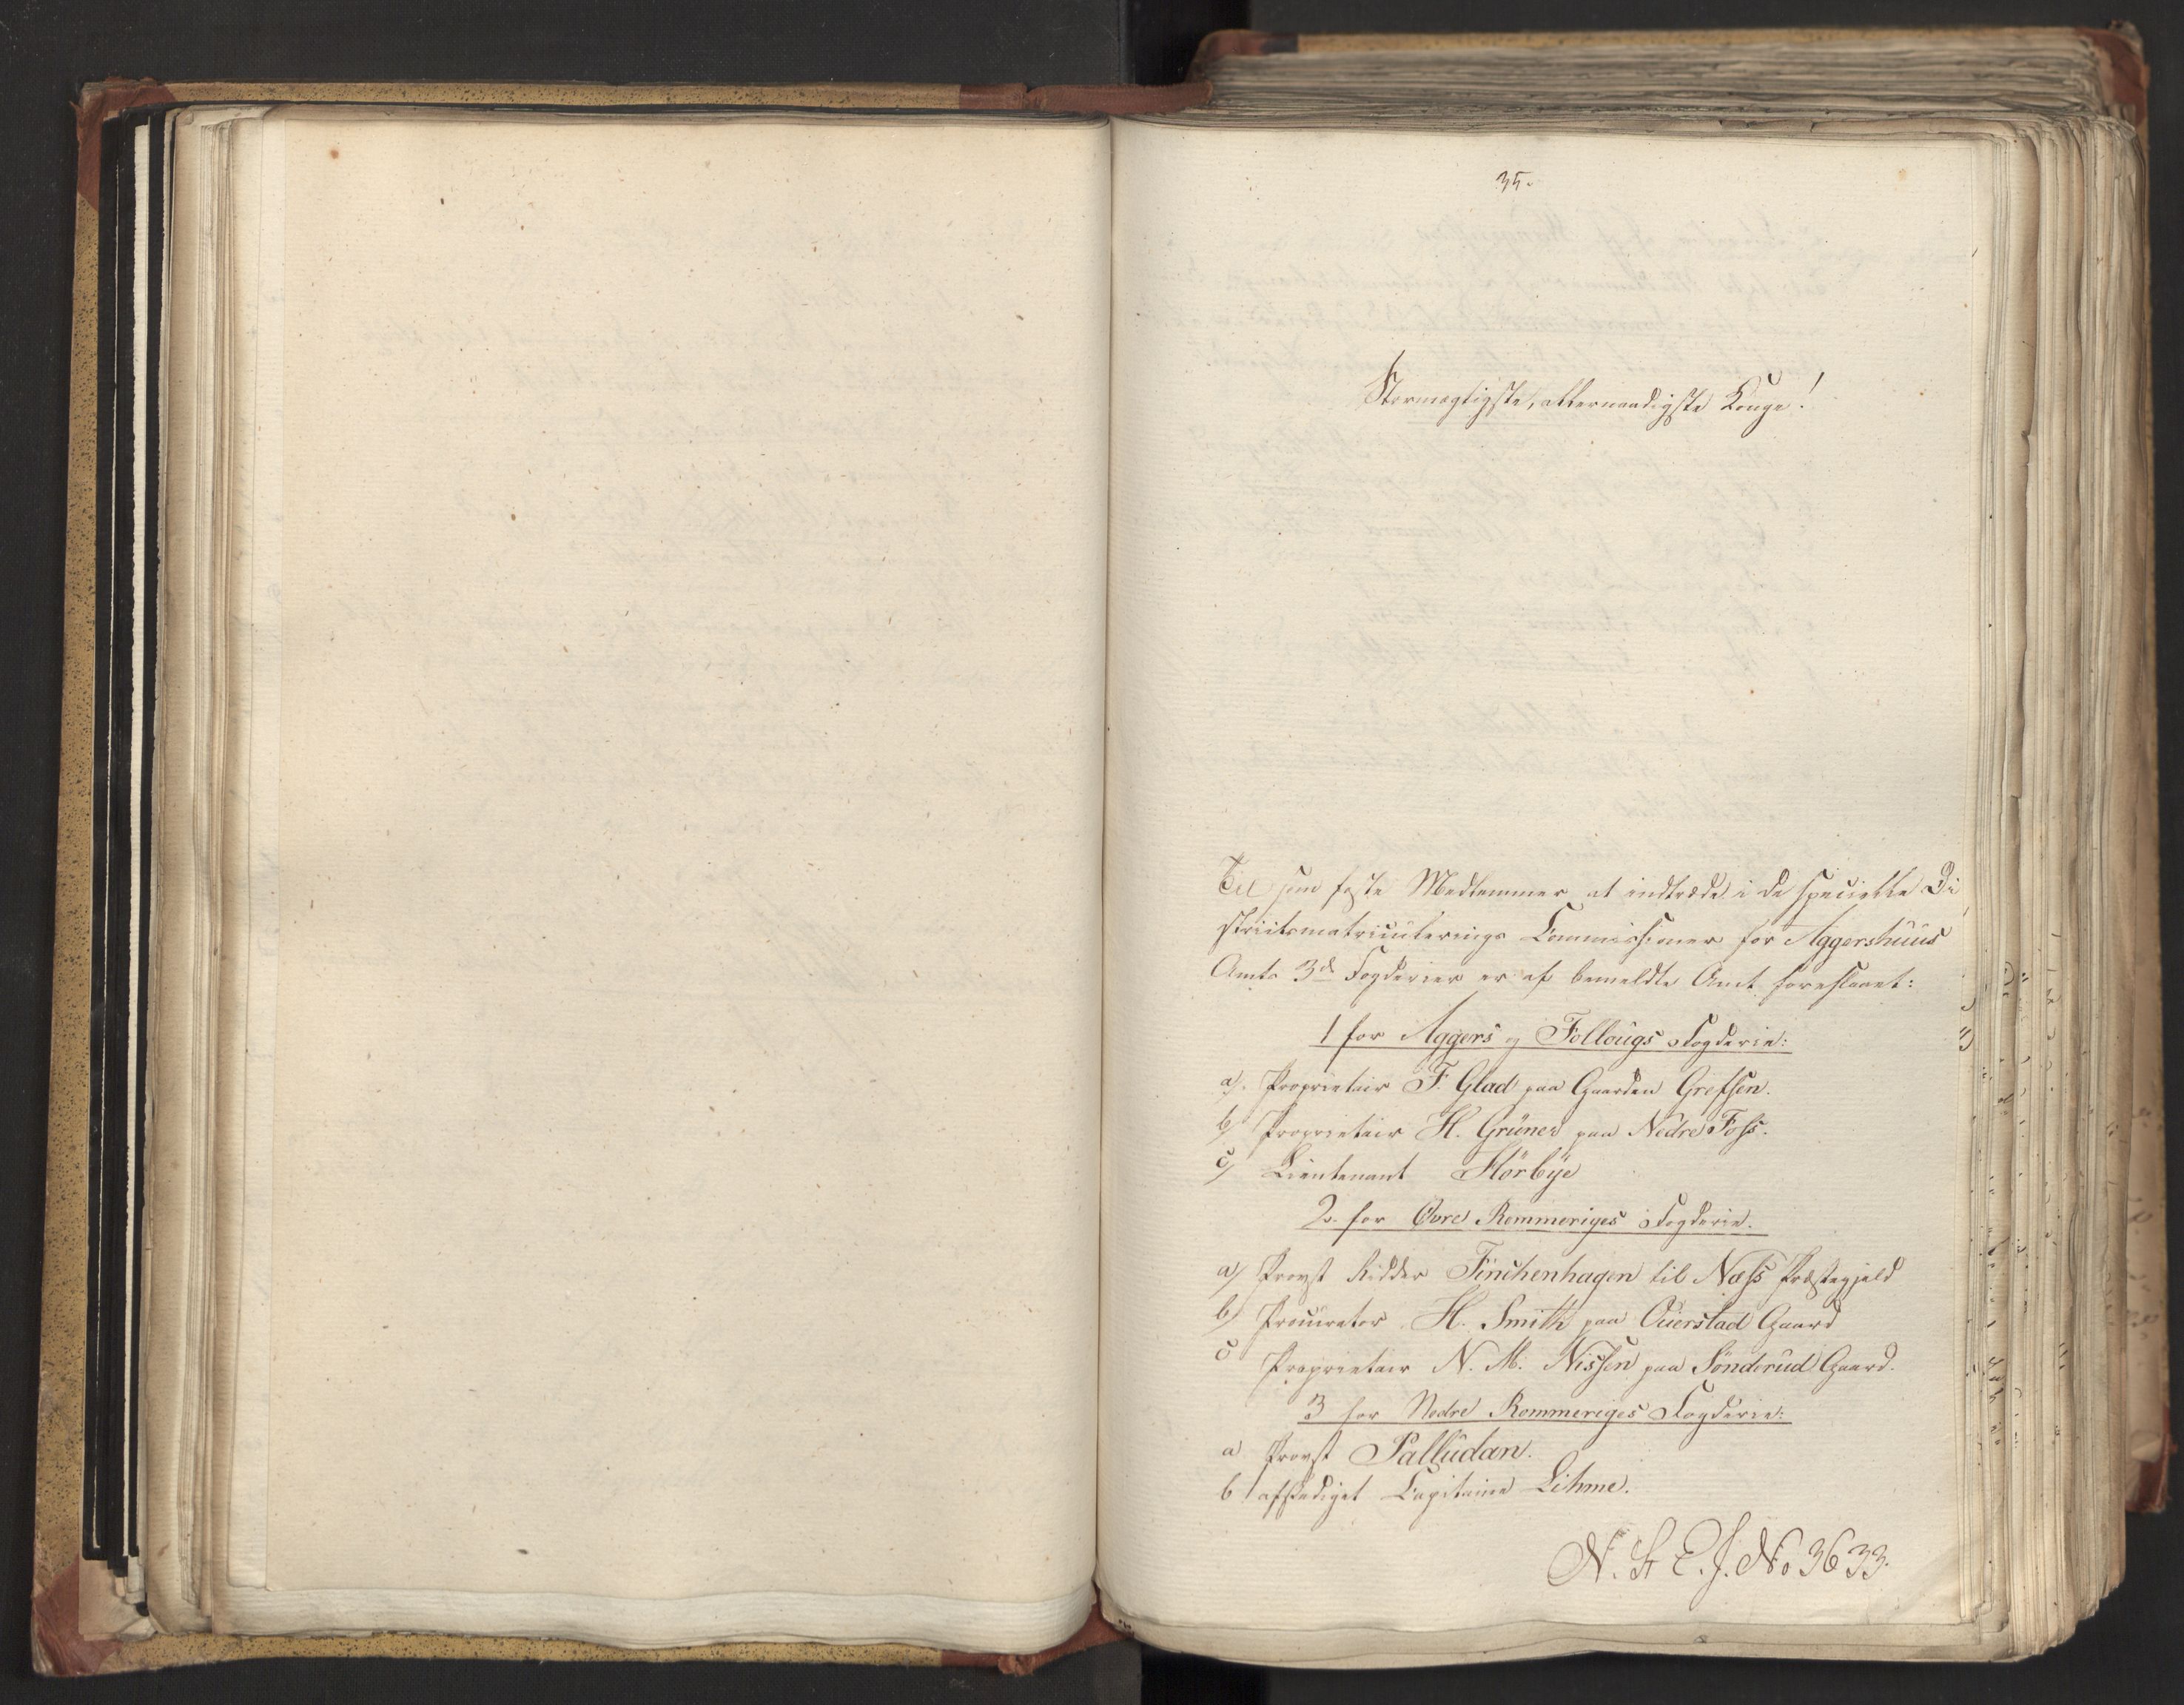 35.
Stormægtigste, allernaadigste Konge!
Til som faste Medlemmer at indtræde i de specielle Di
strictsmatriculerings Commissioner for Aggershuus
Amts 3de Fogderier er af bemeldte Amt foreslaaet:
1 for Aggers og Follougs Fogderie:
a). Proprietair F. Glad paa Gaarden Grefsen.
b) Proprietair H. Grüner paa Nedre Foss.
c) Lieutenant Hörbye
2. for Øvre Rommeriges Fogderie.
a) Provst Ridder Finchenhagen til Næss Præstegjeld
b) Procurator H. Smith paa Ouerstad Gaard
c Proprietair N. M. Nissen paa Sönderud Gaard.
3 for Nedre Rommeriges Fogderie:
a Provst Palludan.
b afskediget Capitaine Lihme.
N. St E. J. No 3633.